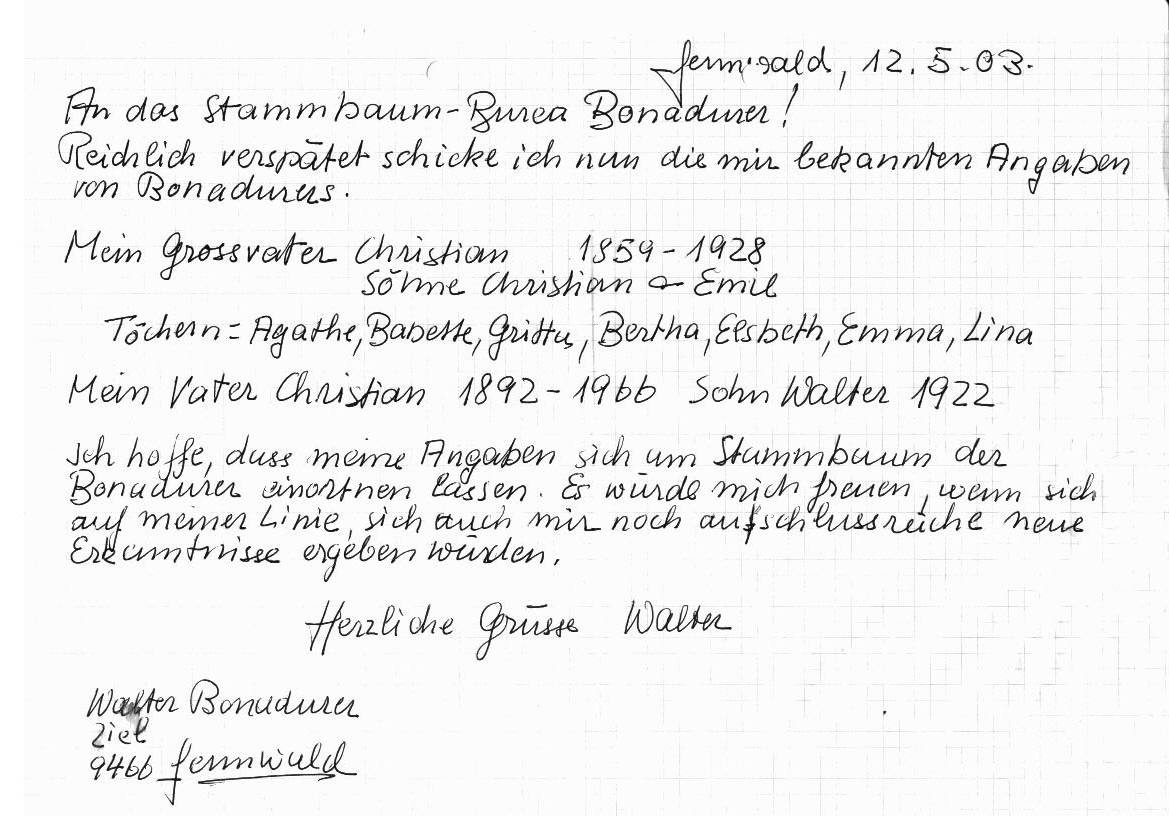 Sennwald, 12.5.03.
An das Stammbaum-Burea Bonadurer!
Reichlich verspätet schicke ich nun die mir bekannten Angaben
von Bonadurers.
Mein Grossvater Christian 1859-1928
Söhne Christian & Emil
Töchern = Agathe, Babette, Grittu, Bertha, Elsbeth, Emma, Lina
Mein Vater Christian 1892-1966 Sohn Walter 1922
Ich hoffe, dass meine Angaben sich am Stammbaum der
Bonadurer einortnen lassen. Es würde mich freuen, wenn sich
auf meiner Linie, sich auch mir noch aufschlussreiche neue
Erkanntnisse ergeben würden.
Herzliche Grüsse Walter
Walter Bonadurer
Ziel
9466 Sennwald